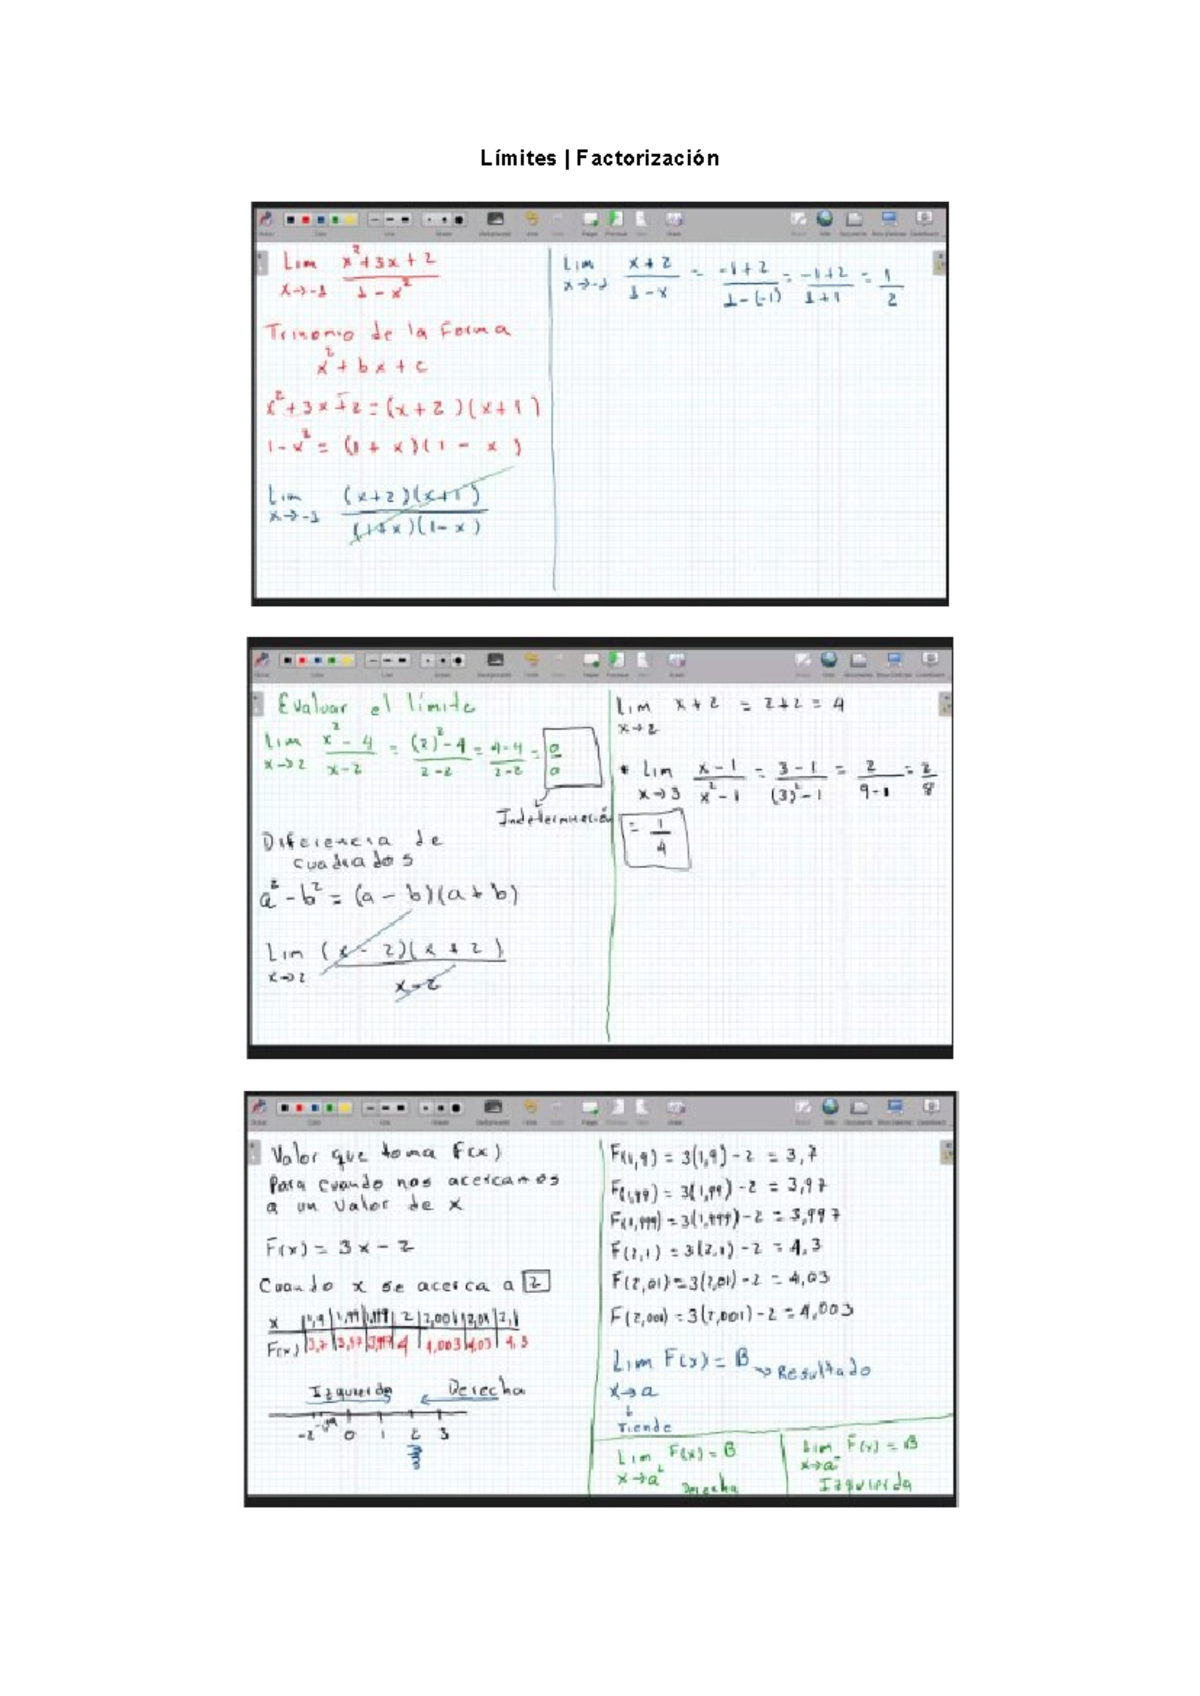 Límites | Factorización
Lim x²+3x+2
x→-1 1-x²
Trinomio de la Forma
x²+bx+c
x²+3x+2=(x+2)(x+1)
1-x²=(1+x)(1-x)
Lim (x+2)(x+1)
x→-1 (1+x)(1-x)
Lim x+2 = -1+2 = -1+2 = 1
x→-1 1-x 1-(-1) 1+1 2
Evaluar el límite
Lim x²-4 = (2)²-4 = 4-4 = 0
x→2 x-2 2-2 2-2 0
Indeterminación
Diferencia de
cuadrados
a²-b²=(a-b)(a+b)
Lim (x-2)(x+2)
x→2 x-2
Lim x+2 = 2+2 = 4
x→2
* Lim x-1 = 3-1 = 2 = 2
x→3 x²-1 (3)²-1 9-1 8
= 1
4
Valor que toma F(x)
Para cuando nos acercamos
a un valor de x
F(x) = 3x-2
Cuando x se acerca a 2
x 1,9 1,99 1,999 2 2,001 2,01 2,1
F(x) 3,7 3,97 3,997 4 4,003 4,03 4,3
Izquierda Derecha
-2 0 1 2 3
F(1,9) = 3(1,9)-2 = 3,7
F(1,99) = 3(1,99)-2 = 3,97
F(1,999) = 3(1,999)-2 = 3,997
F(2,1) = 3(2,1)-2 = 4,3
F(2,01) = 3(2,01)-2 = 4,03
F(2,001) = 3(2,001)-2 = 4,003
Lim F(x) = B → Resultado
x→a
↓
Tiende
Lim F(x) = B
x→a⁺ Derecha
Lim F(x) = B
x→a⁻
Izquierda